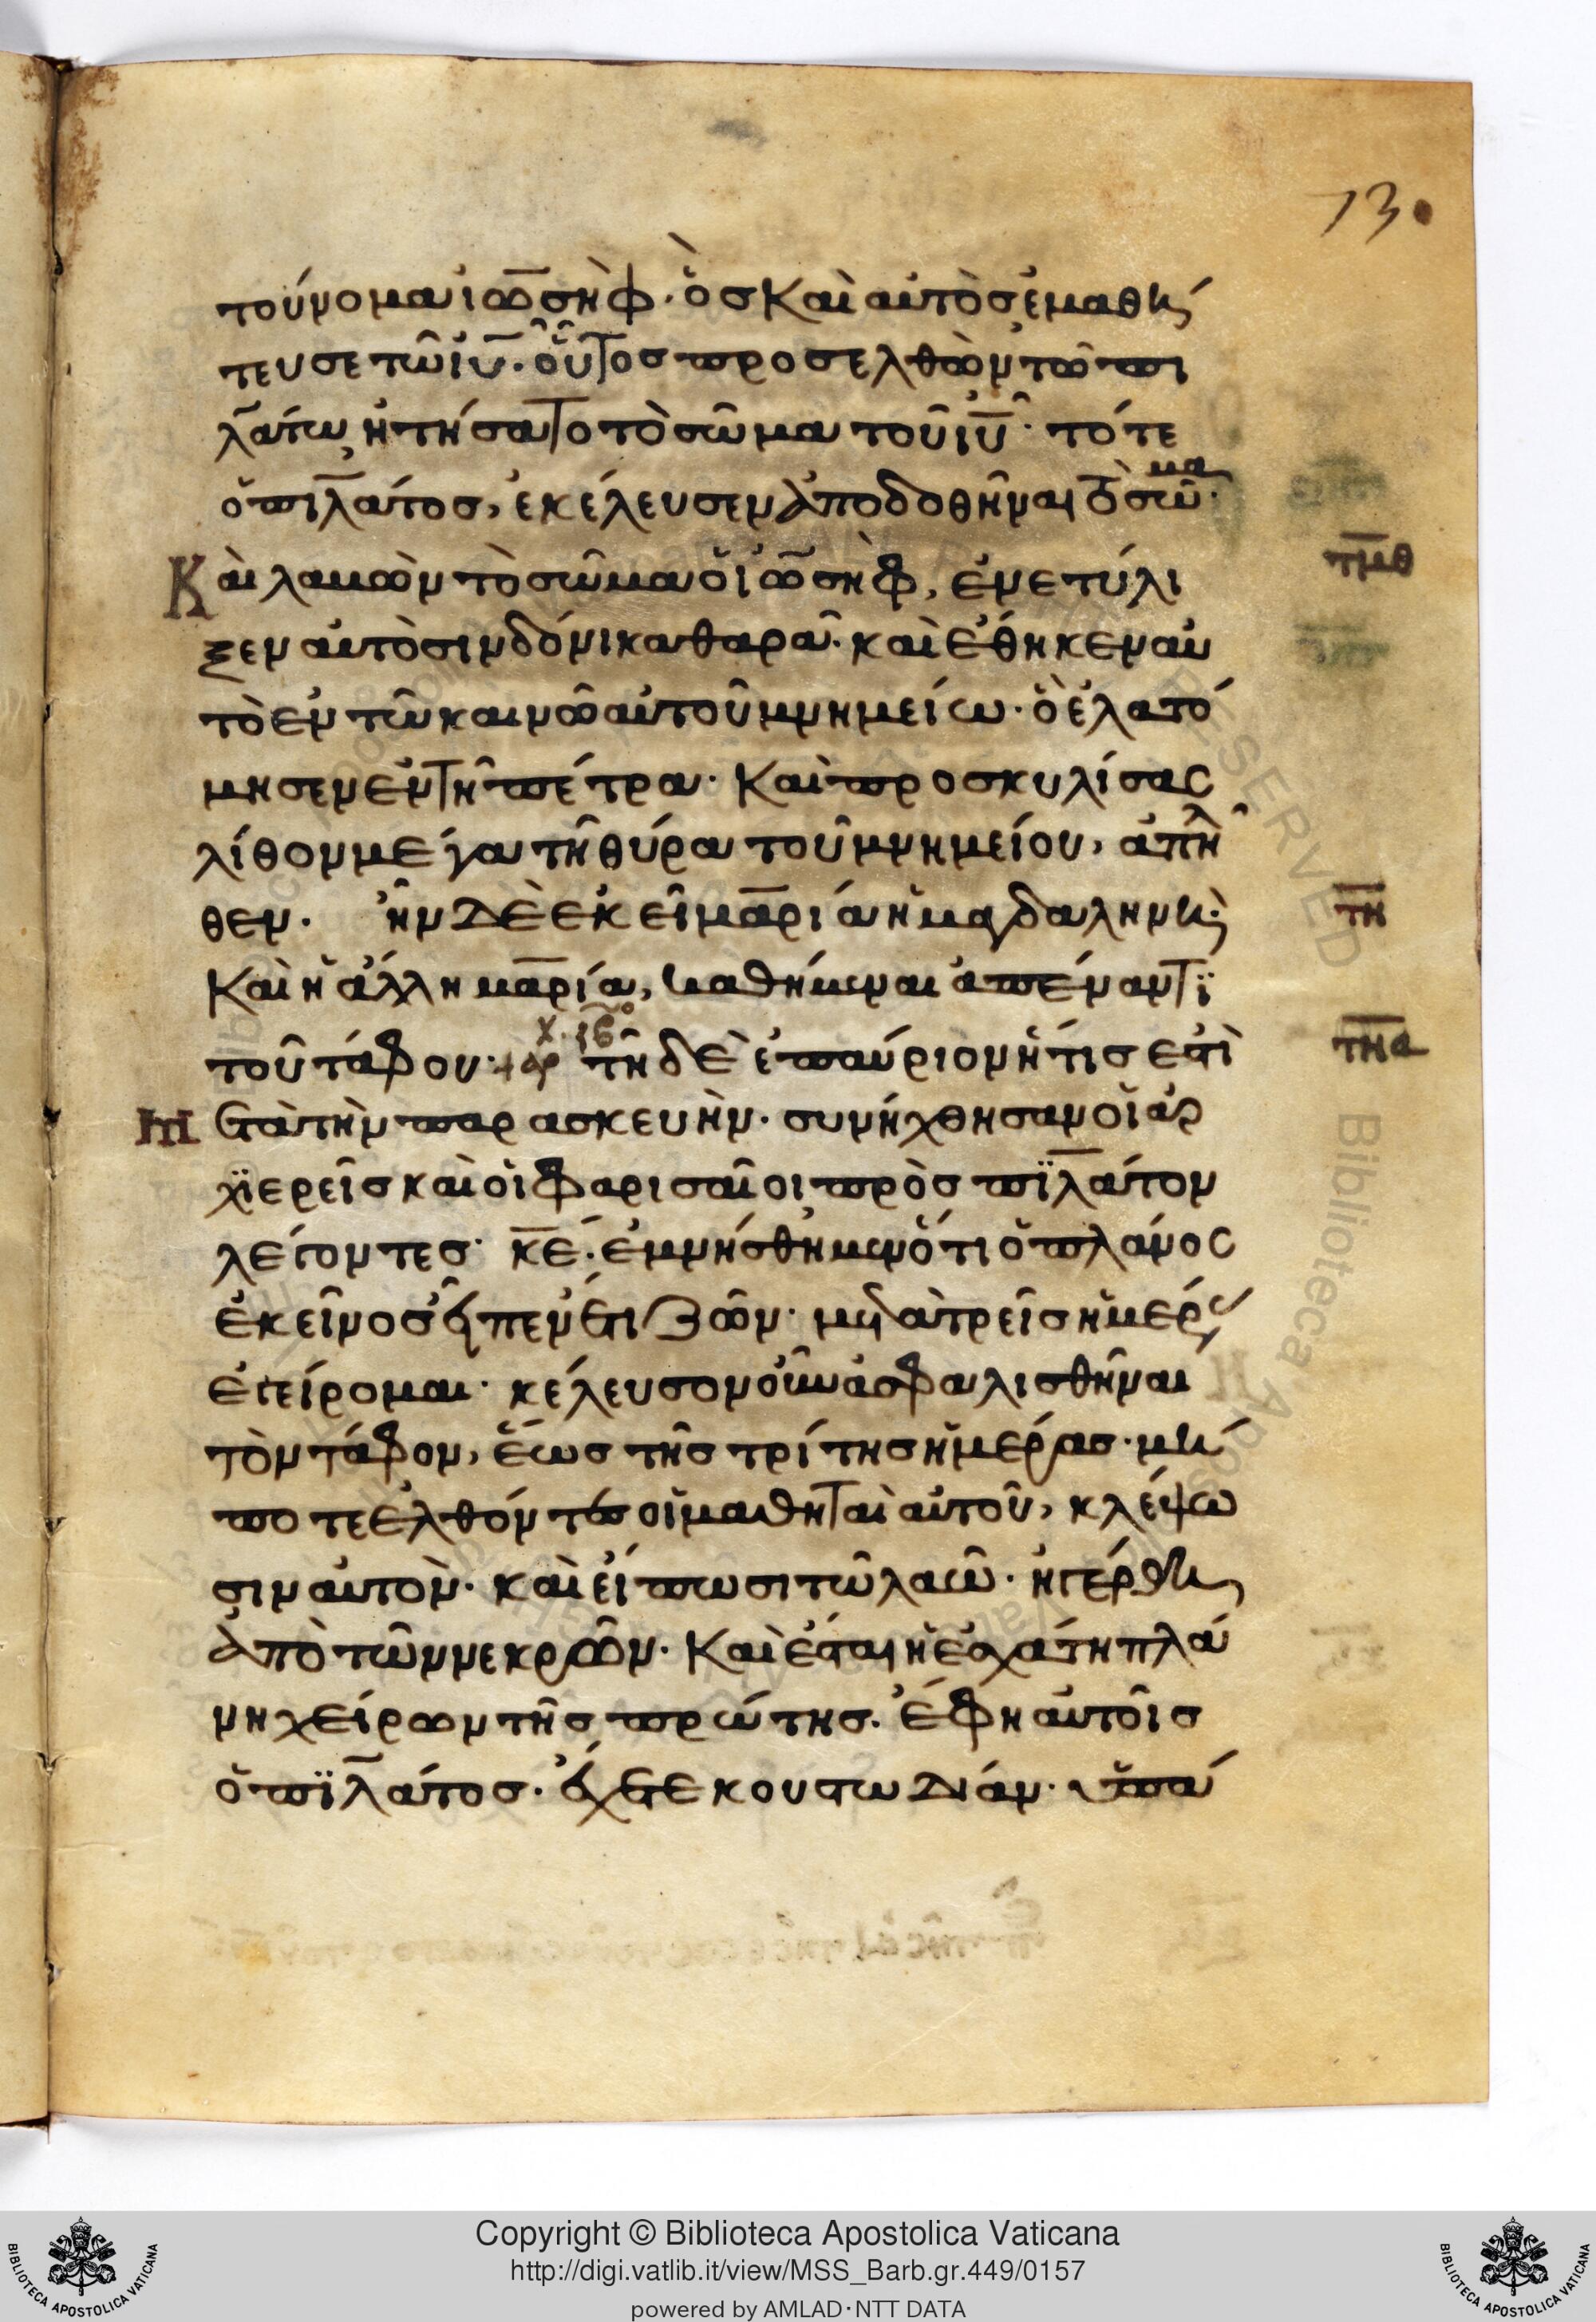 73
τούνομα ἰωσὴφ· ὃσ καὶ αὐτὸσ ἐμαθή
τευσε τῶ ἰῡ· οὗτοσ προσελθὼν τῶ πι
λάτω, ἠτήσατο τὸ σῶμα τοῦ ἰῡ· τότε
ὁ πιλάτοσ, ἐκέλευσεν ἀποδοθῆναι τὸ σῶμα·
Καὶ λαβὼν τὸ σῶμα ὁ ἰωσὴφ, ἐνετύλι
ξεν αὐτὸ σινδόνι καθαρᾶ· καὶ ἔθηκεν αὐ
τὸ ἐν τῶ καινῶ αὐτοῦ μνημείω· ὃ ἐλατό
μησεν ἐν τῆ πέτρα· καὶ προσκυλίσας
λίθον μέγα τῆ θύρα τοῦ μνημείου, ἀπῆλ
θεν· ἦν δὲ ἐκεῖ μαρία ἡ μαγδαληνὴ·
καὶ ἡ ἄλλη μαρία, καθήμεναι ἀπέναντϊ
τοῦ τάφου· τῆ δὲ ἐπαύριον ἥτισ ἐστὶ
μετὰ τὴν παρασκευὴν· συνήχθησαν οἱ ἀρ
χϊερεῖσ καὶ οἱ φαρισαῖοι πρὸσ πϊλάτον
λέγοντεσ· κ̄ε̄· ἐμνήσθημεν ὅτι ὁ πλάνος
ἐκεῖνοσ εἶπεν ἔτι ζῶν· μετὰ τρεῖσ ἡμέρας
ἐγείρομαι· κέλευσον οὖν ἀσφαλισθῆναι
τὸν τάφον, ἕωσ τῆσ τρίτησ ἡμέρασ· μή
ποτε ἐλθόντεσ οἱ μαθηταὶ αὐτοῦ, κλέψω
σιν αὐτὸν· καὶ εἴπωσι τῶ λαῶ· ἠγέρθη
ἀπὸ τῶν νεκρῶν· καὶ ἔσται ἡ ἐσχάτη πλά
νη χείρων τῆσ πρώτησ· ἔφη αὐτοῖσ
ὁ πϊλάτοσ· ἔχετε κουστωδίαν· ὑπά
τμθ
τν
τνα
Copyright © Biblioteca Apostolica Vaticana
http://digi.vatlib.it/view/MSS_Barb.gr.449/0157
powered by AMLAD·NTT DATA
BIBLIOTECA APOSTOLICA VATICANA
BIBLIOTECA APOSTOLICA VATICANA